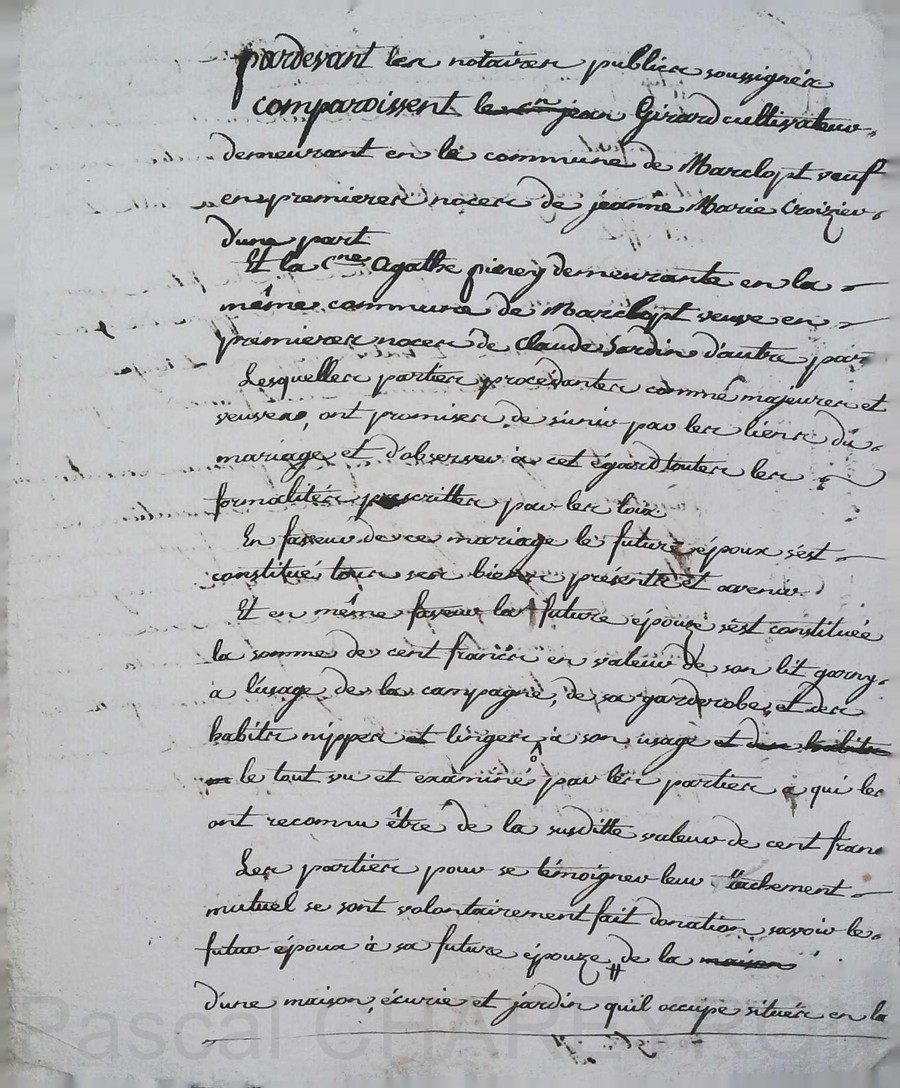 pardevant les notaires publics soussignés
comparoissent le cn jean Girard cultivateur
demeurant en la commune de Marclopt veuf
en premieres noces de jeanne Marie Croizier
d'une part
Et la Cne Agathe pieney demeurante en la
même commune de Marclopt veuve en
premieres noces de Claude Jardin d'autre part
Lesquelles parties procédantes comme majeures et
veuves, ont promises de s'unir par les liens du
mariage et d'observer à cet égard toutes les
formalités prescrittes par les loix
En faveur de ce mariage le futur époux s'est
constitué tous ses biens présents et avenir
Et en même faveur la future épouze s'est constituée
la somme de cent francs en valeur de son lit garny
a l'usage de la campagne, de sa garderobe, et des
habits nippes et linges a son usage et des habits
le tout vu et examiné par les parties a qui les
ont reconnu être de la susditte valeur de cent franc
Les parties pour se témoigner leur tachement
mutuel se sont volontairement fait donation savoir le
futur époux à sa future épouze de la maison
d'une maison écurie et jardin qu'il occupe située en la
Pascal CHAREYRON